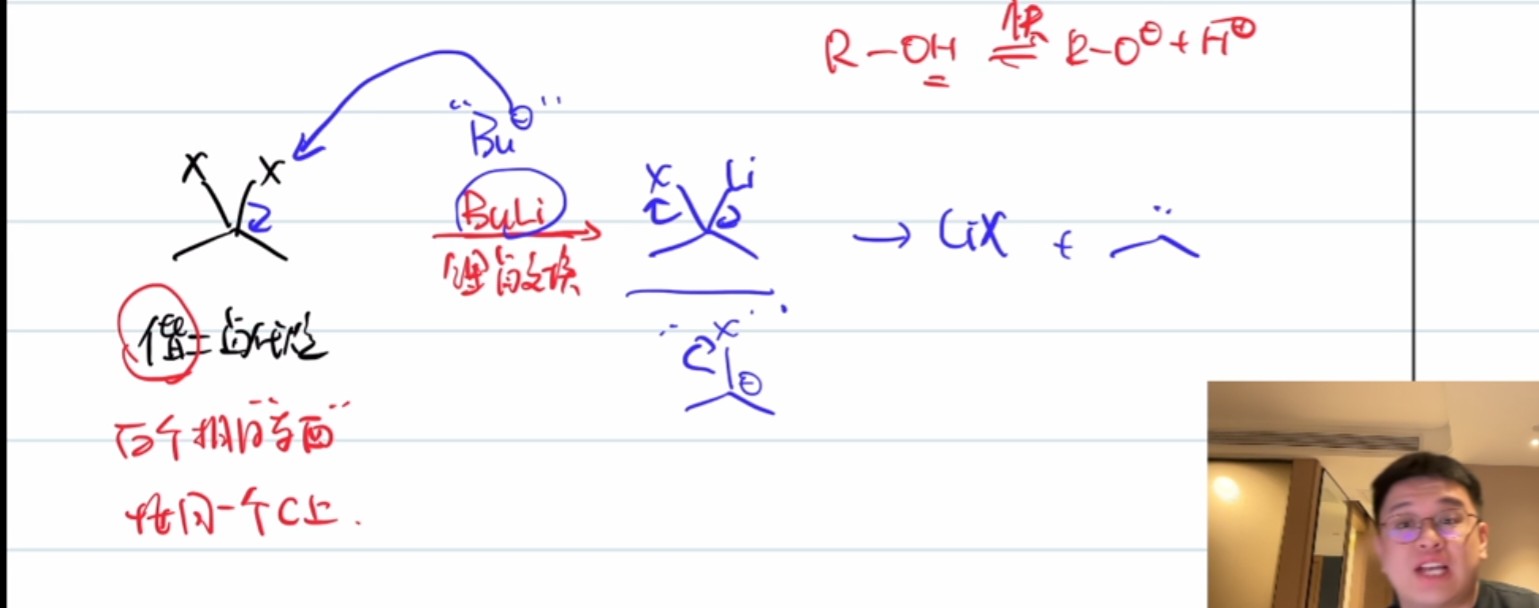 R-OH 快 ⇌ R-O⊖ + H⊕
"Bu⊖"
X X
BuLi
锂卤交换
X Li
→ LiX +
偕二卤代烃
X
⊖
两个相同官能团
在同一个C上.